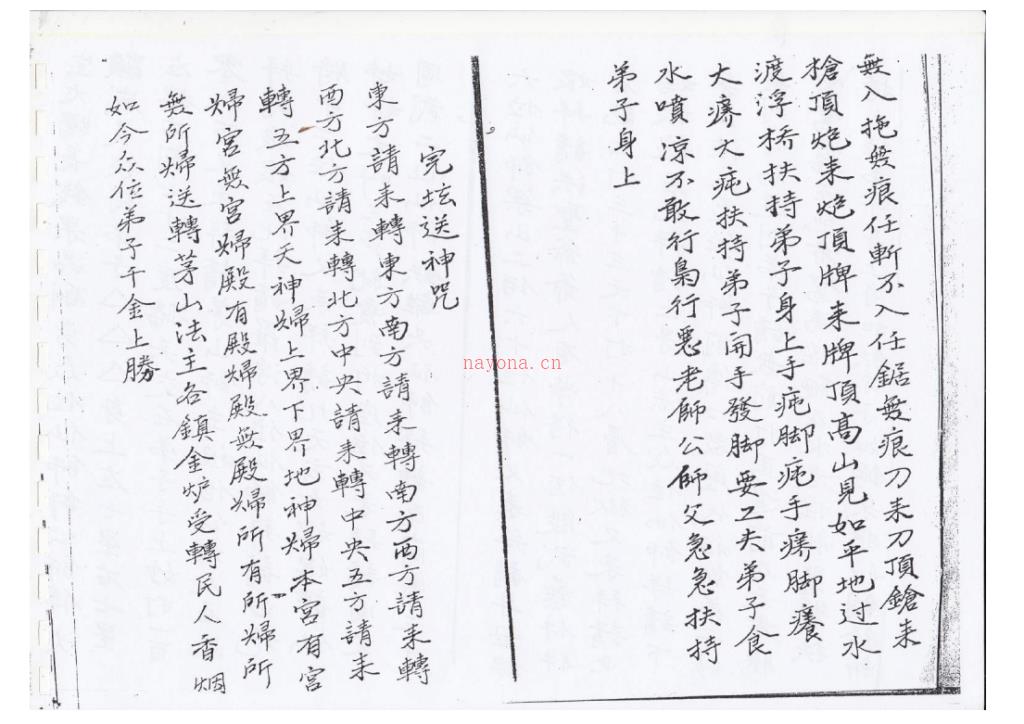 無入拖無痕任斬不入任鋸無痕刀来刀頂鎗来
槍頂炮来炮頂牌来牌頂高山見如平地过水
渡浮桥扶持弟子身上手疨脚疨手癢脚癢
大癢大疨扶持弟子開手發脚要工夫弟子食
水噴凉不敢行梟行惡老師公師父急急扶持
弟子身上
完坛送神咒
東方請来轉東方南方請来轉南方西方請来轉
西方北方請来轉北方中央請来轉中央五方請来
轉五方上界天神婦上界下界地神婦本宮有宮
婦宮無宮婦殿有殿婦殿無殿婦所有所婦所
無所婦送轉茅山法主各鎮金炉受轉民人香烟
如今众位弟子千金上勝
nayona.cn